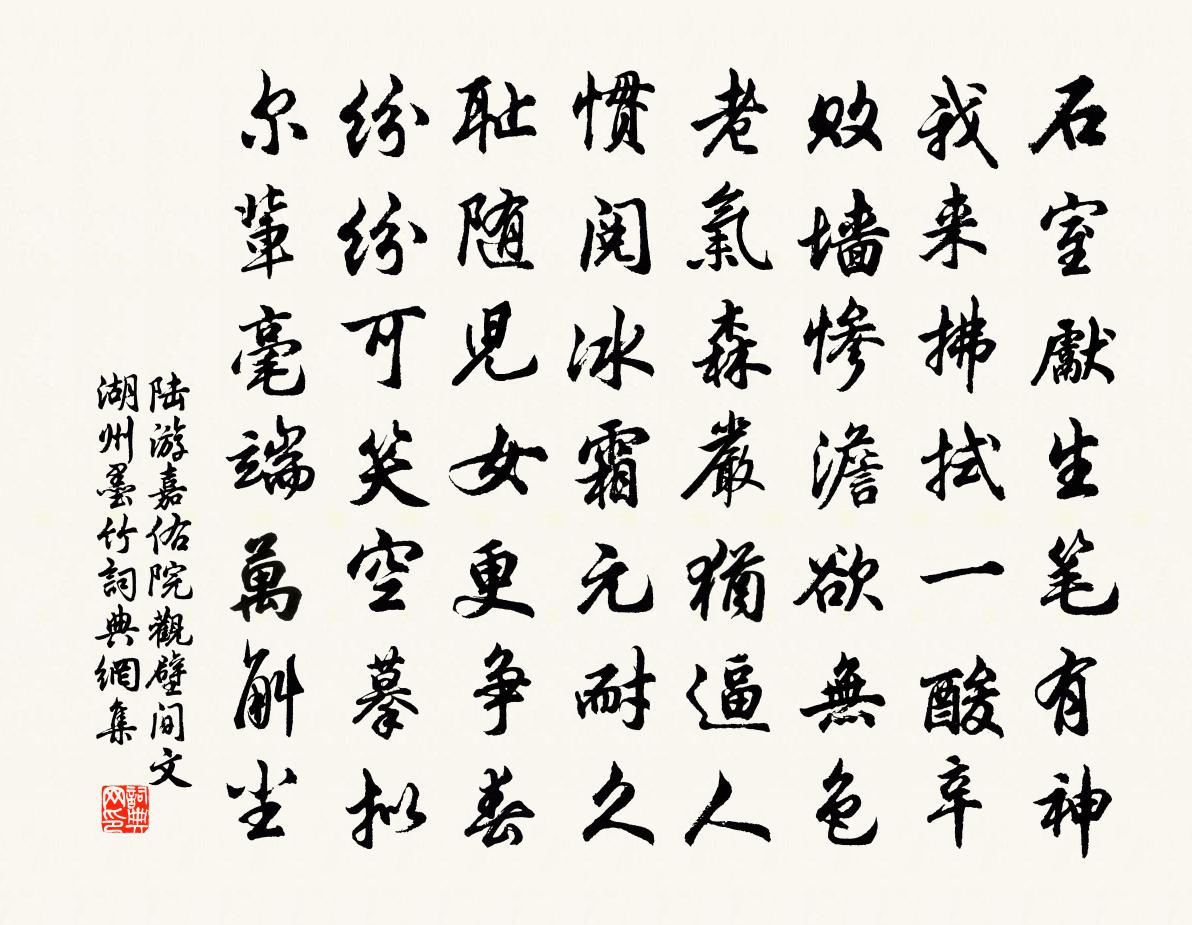 石室獻生笔有神
我来拂拭一酸辛
败墙惨澹欲無色
老氣森嚴犹逼人
慣阅冰霜元耐久
耻随児女更争春
纷纷可笑空摹拟
尔輩毫端萬斛尘
陆游嘉佑院觀壁间文
湖州墨竹詞典網集
詞典网印